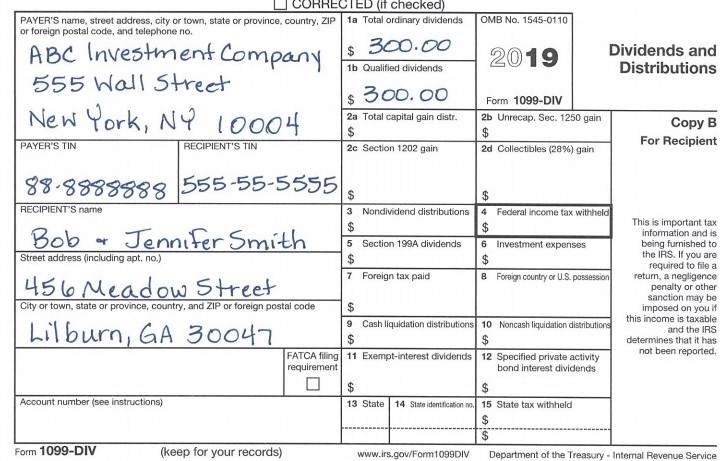 CORRECTED (if checked)
PAYER'S name, street address, city or town, state or province, country, ZIP
or foreign postal code, and telephone no.
ABC Investment Company
555 Wall Street
New York, NY 10004
1a Total ordinary dividends
$ 300.00
1b Qualified dividends
$ 300.00
OMB No. 1545-0110
2019
Form 1099-DIV
Dividends and
Distributions
2a Total capital gain distr.
$
2b Unrecap. Sec. 1250 gain
$
Copy B
For Recipient
PAYER'S TIN
88-8888888
RECIPIENT'S TIN
555-55-5555
2c Section 1202 gain
$
2d Collectibles (28%) gain
$
RECIPIENT'S name
Bob & Jennifer Smith
3 Nondividend distributions
$
4 Federal income tax withheld
$
Street address (including apt. no.)
456 Meadow Street
5 Section 199A dividends
$
6 Investment expenses
$
7 Foreign tax paid
$
8 Foreign country or U.S. possession
City or town, state or province, country, and ZIP or foreign postal code
Lilburn, GA 30047
9 Cash liquidation distributions
$
10 Noncash liquidation distributions
$
FATCA filing
requirement
11 Exempt-interest dividends
$
12 Specified private activity
bond interest dividends
$
This is important tax
information and is
being furnished to
the IRS. If you are
required to file a
return, a negligence
penalty or other
sanction may be
imposed on you if
this income is taxable
and the IRS
determines that it has
not been reported.
Account number (see instructions)
13 State
14 State identification no.
15 State tax withheld
$
$
Form 1099-DIV
(keep for your records)
www.irs.gov/Form1099DIV
Department of the Treasury - Internal Revenue Service